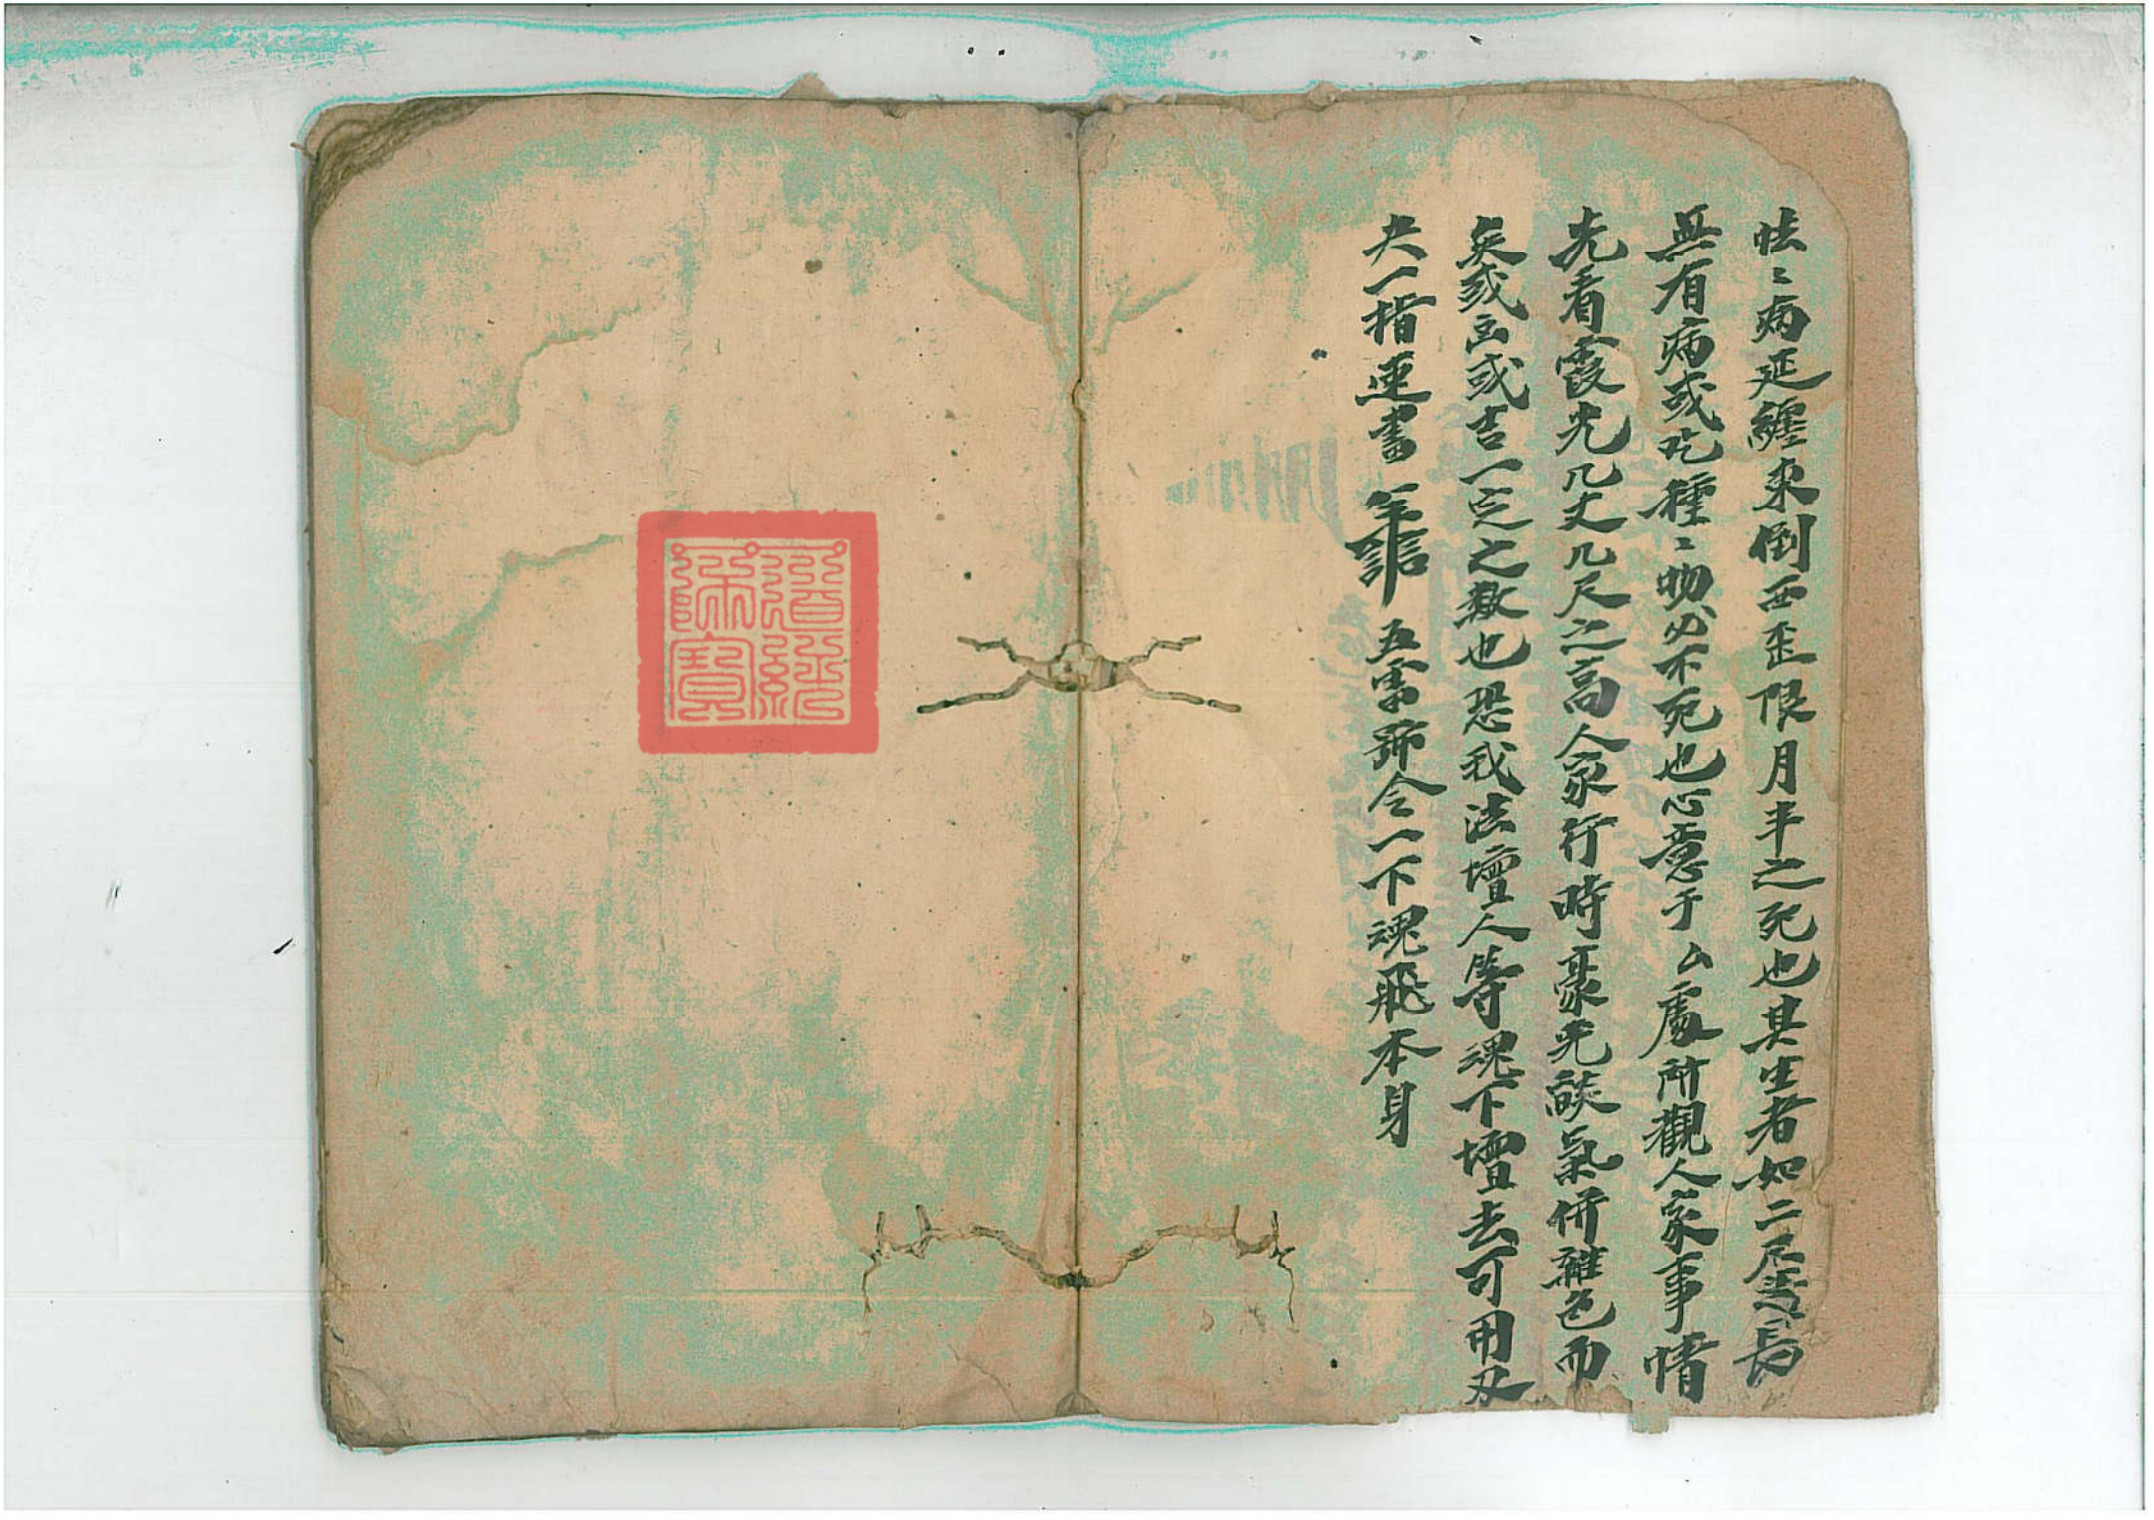 怯〻病延纏東倒西歪限月半之死也其生者如二尺壽長
無有病或吃種〻吻必不死也心意于厶處所觀人家事情
先看霞光几丈几尺之高人家行時豪光談氣併雜色而
矣或凶或吉一定之数也恐我法壇人等魂下壇去可用刄
夫一指速書 五雷號令一下魂飛本身
道經師寶